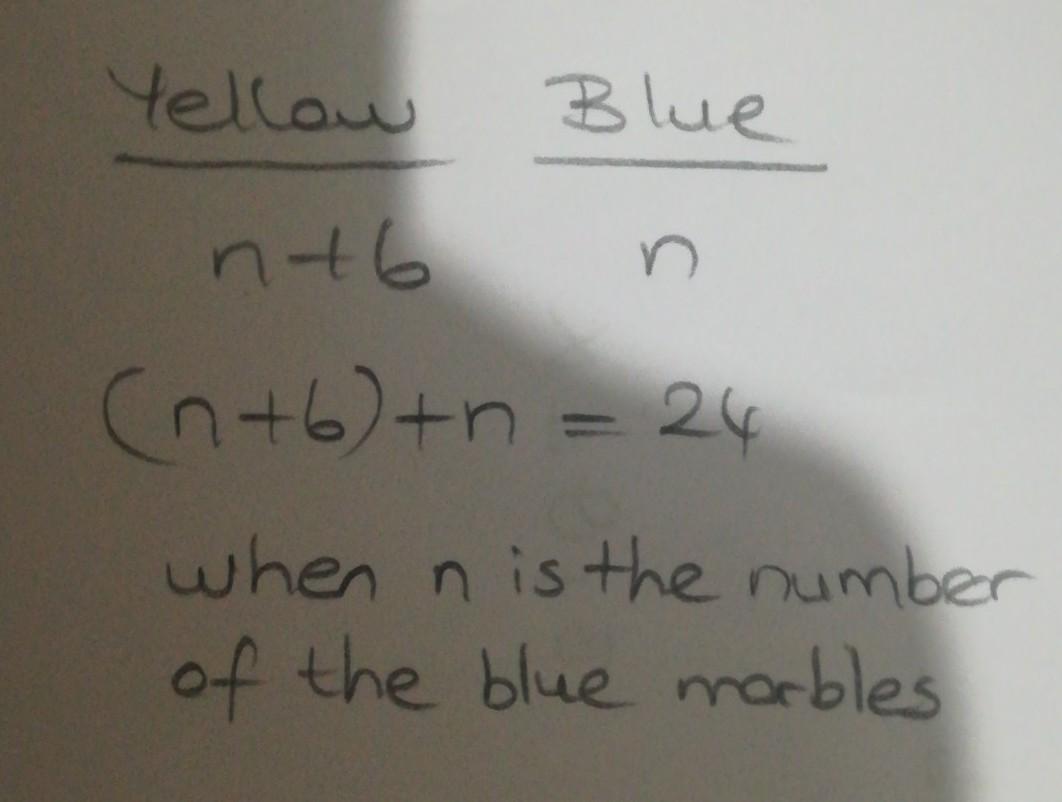 Yellow Blue
n+6 n
(n+6)+n = 24
when n is the number
of the blue marbles